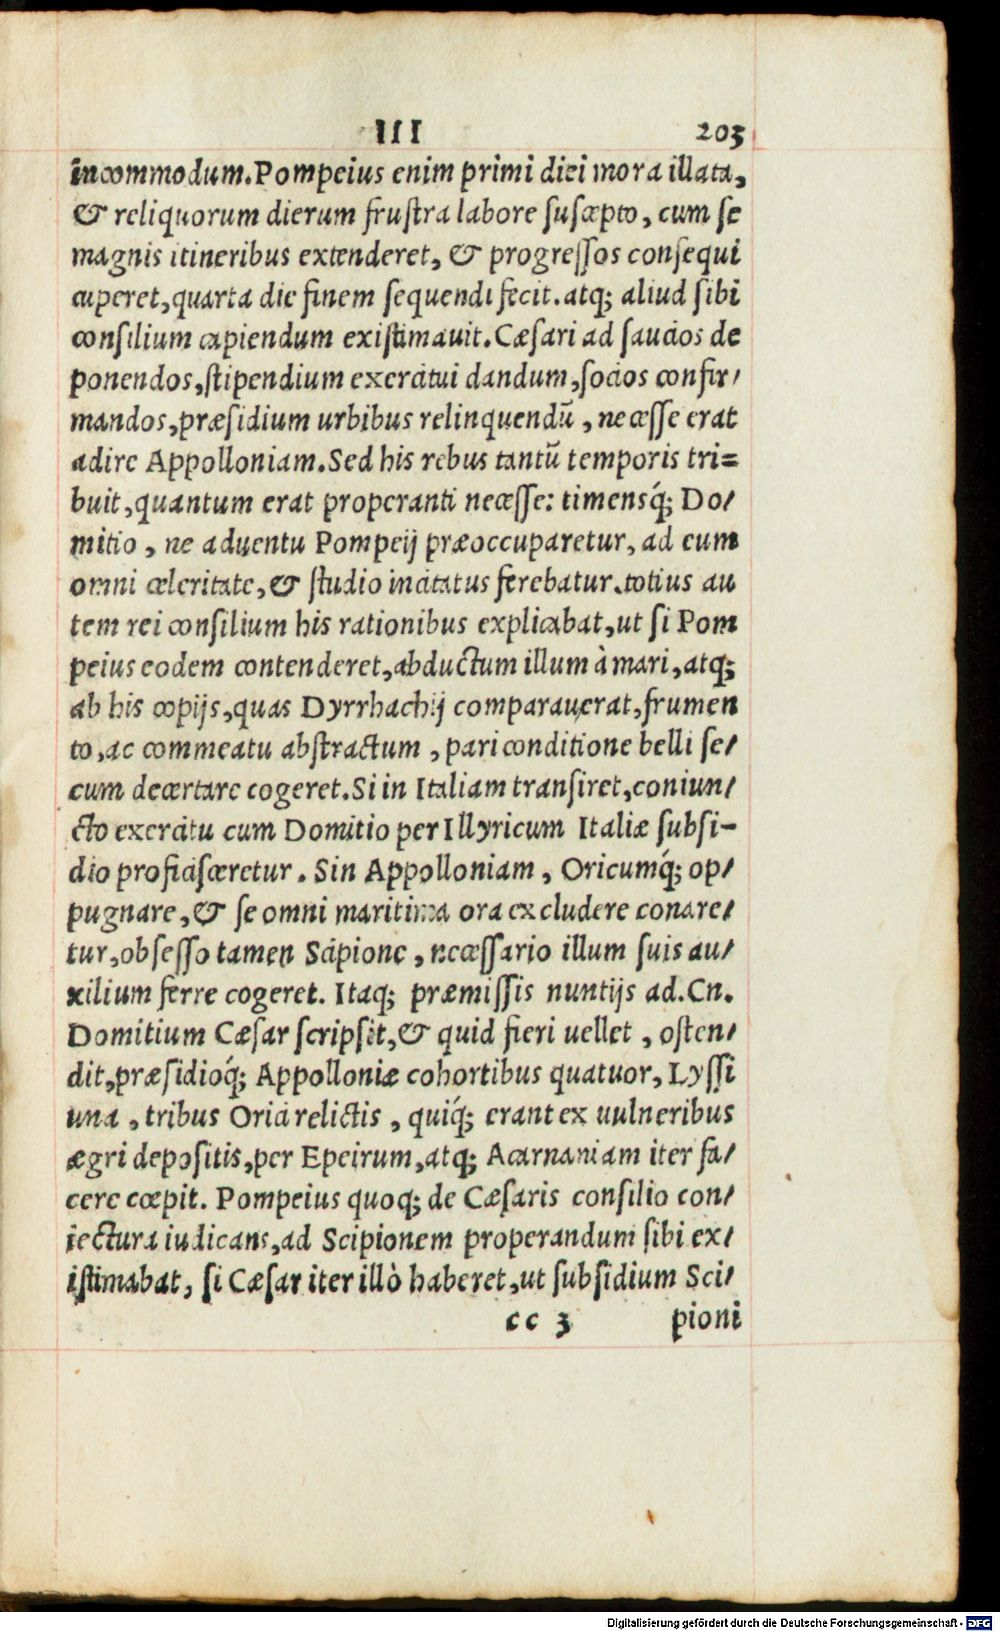 III 203
incommodum. Pompeius enim primi diei mora illata,
& reliquorum dierum frustra labore suscepto, cum se
magnis itineribus extenderet, & progressos consequi
cuperet, quarta die finem sequendi fecit. atq; aliud sibi
consilium capiendum existimauit. Cæsari ad saucios de
ponendos, stipendium exercitui dandum, socios confir/
mandos, præsidium urbibus relinquendũ, necesse erat
adire Appolloniam. Sed his rebus tantũ temporis tri=
buit, quantum erat properanti necesse: timensq́; Do/
mitio, ne aduentu Pompeij præoccuparetur, ad eum
omni celeritate, & studio incitatus ferebatur. totius au
tem rei consilium his rationibus explicabat, ut si Pom
peius eodem contenderet, abductum illum à mari, atq;
ab his copijs, quas Dyrrhachij comparauerat, frumen
to, ac commeatu abstractum, pari conditione belli se/
cum decertare cogeret. Si in Italiam transiret, coniun/
cto exercitu cum Domitio per Illyricum Italiæ subsi-
dio proficisceretur. Sin Appolloniam, Oricumq́; op/
pugnare, & se omni maritima ora excludere conare/
tur, obsesso tamen Scipione, necessario illum suis au/
xilium ferre cogeret. Itaq; præmissis nuntijs ad. Cn.
Domitium Cæsar scripsit, & quid fieri uellet, osten/
dit, præsidioq́; Appolloniæ cohortibus quatuor, Lyssi
una, tribus Orici relictis, quiq́; erant ex uulneribus
ægri depositis, per Epeirum, atq; Acarnaniam iter fa/
cere cœpit. Pompeius quoq; de Cæsaris consilio con/
iectura iudicans, ad Scipionem properandum sibi ex/
istimabat, si Cæsar iter illò haberet, ut subsidium Sci/
cc 3 pioni
Digitalisierung gefördert durch die Deutsche Forschungsgemeinschaft - DFG